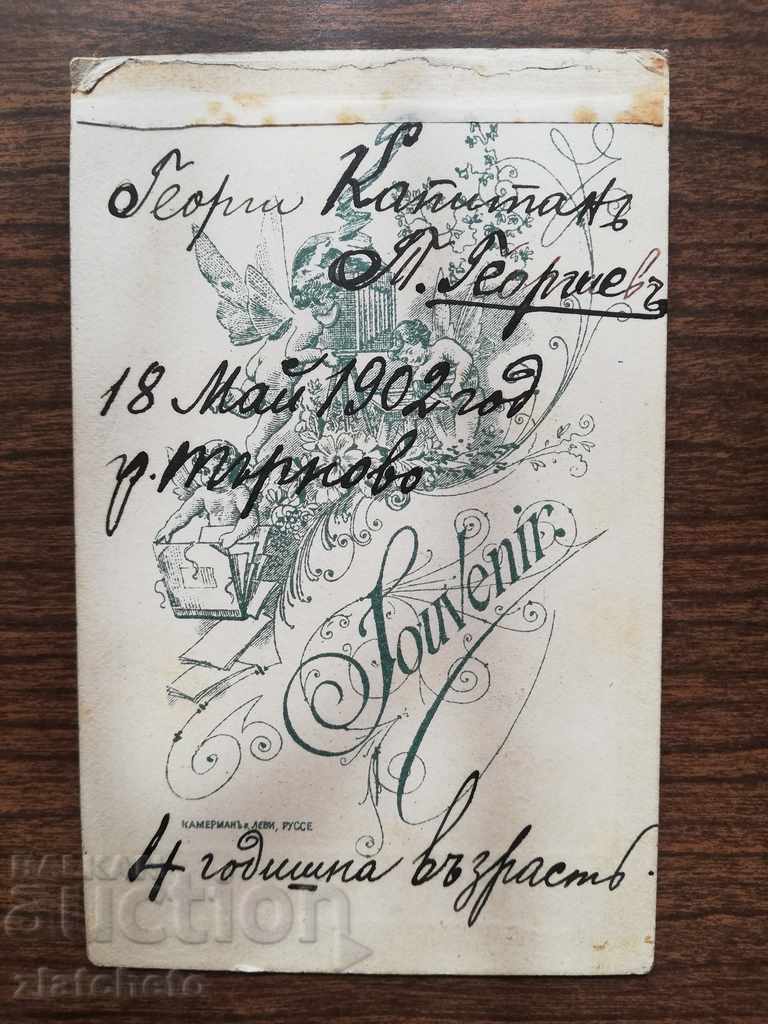 Георги Капитанъ
П. Георгиевъ
18 Май 1902 год
гр. Търново
Souvenir.
КАМЕРМАНЪ и ЛЕВИ, РУССЕ
4 годишна възрасть.
BALKAN
auction
zlatcheto